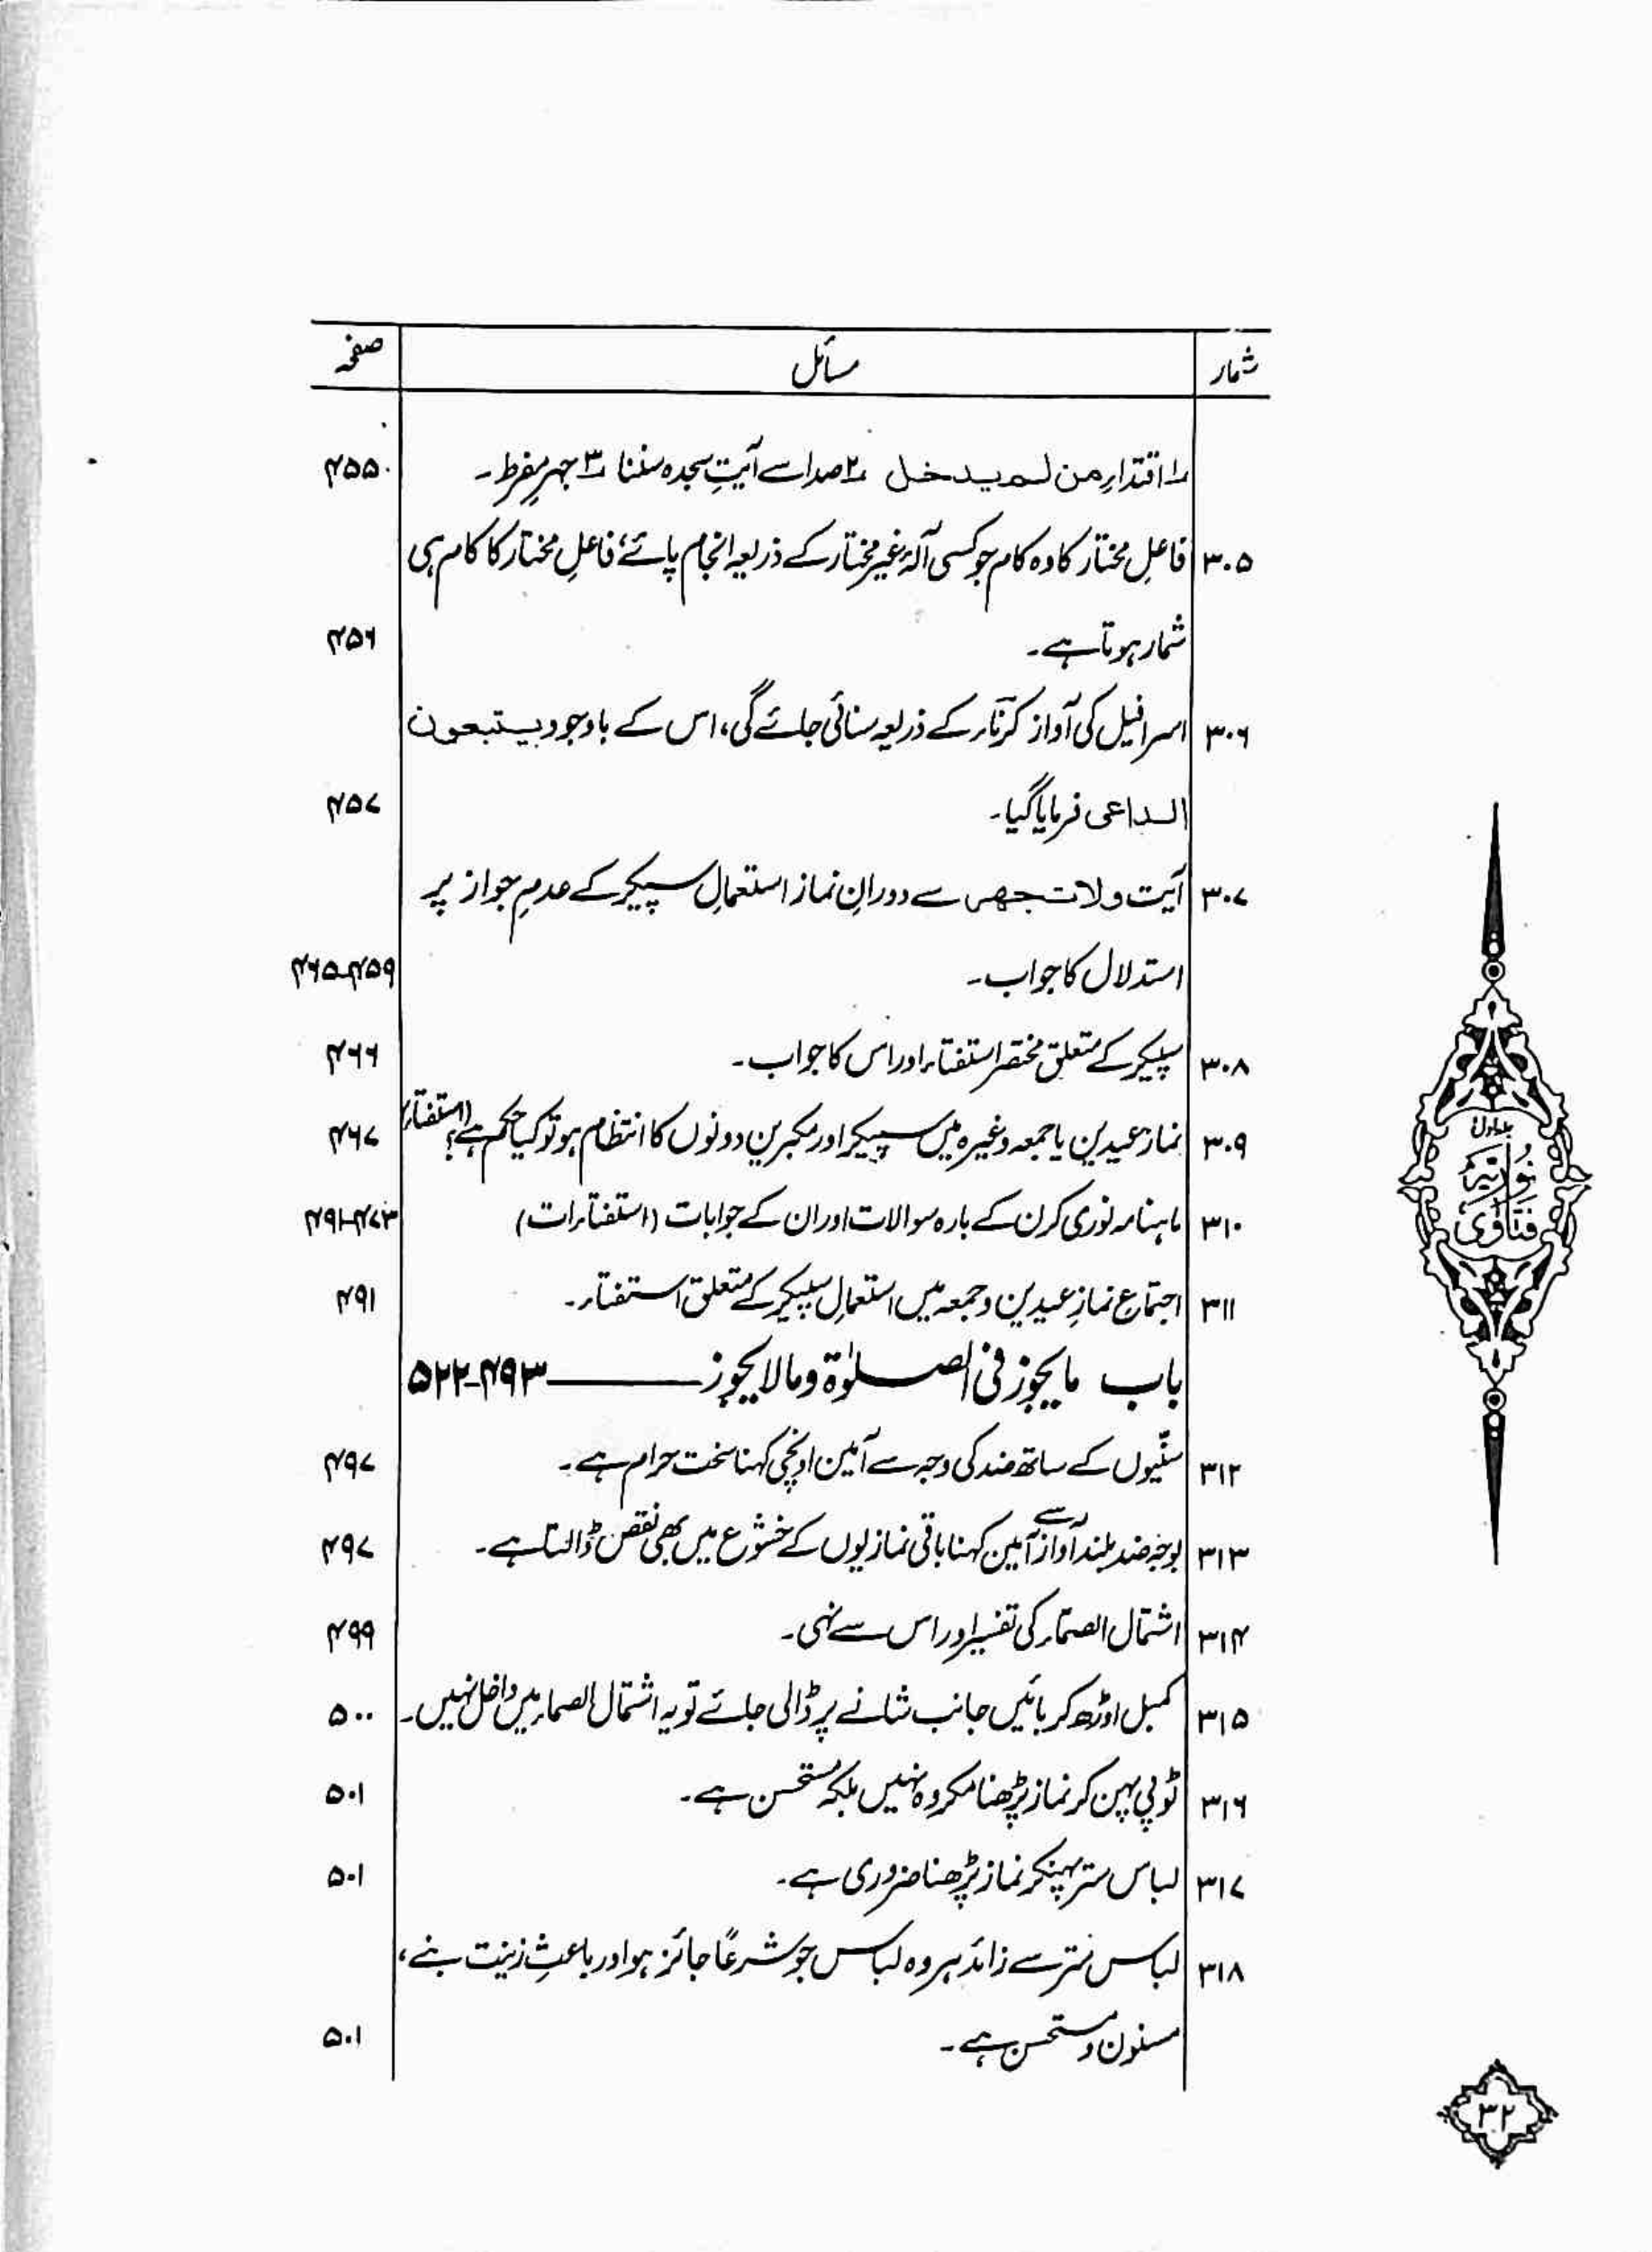 شمار مسائل صفحہ
۱؎ اقتداءِ من لم یدخل ۲؎ صدا سے آیتِ سجدہ سننا ۳؎ جہرِ مفرط۔ ۴۵۵
۳۰۵ فاعلِ مختار کا وہ کام جو کسی آلۂ غیر مختار کے ذریعہ انجام پائے، فاعلِ مختار کا کام ہی
شمار ہوتا ہے۔ ۴۵۶
۳۰۶ اسرافیل کی آواز کرناء کے ذریعہ سنائی جائے گی، اس کے باوجود یتبعون
الداعی فرمایا گیا۔ ۴۵۷
۳۰۷ آیت ولا تجھر سے دورانِ نماز استعمالِ سپیکر کے عدمِ جواز پر
استدلال کا جواب۔ ۴۵۹-۴۶۵
۳۰۸ سپیکر کے متعلق مختصر استفتاء اور اس کا جواب۔ ۴۶۶
۳۰۹ نماز عیدین یا جمعہ وغیرہ میں سپیکر اور مکبرین دونوں کا انتظام ہو تو کیا حکم ہے؟ (استفتاء) ۴۶۷
۳۱۰ ماہنامہ نوری کرن کے بارہ سوالات اور ان کے جوابات (استفتاءات) ۴۷۳-۴۹۱
۳۱۱ اجتماع نمازِ عیدین و جمعہ میں استعمالِ سپیکر کے متعلق استفتاء۔ ۴۹۱
باب ما یجوز فی الصلوٰۃ وما لا یجوز ۴۹۳-۵۲۲
۳۱۲ سنّیوں کے ساتھ ضد کی وجہ سے آمین اونچی کہنا سخت حرام ہے۔ ۴۹۷
۳۱۳ بوجہ ضد بلند آواز سے آمین کہنا باقی نمازیوں کے خشوع میں بھی نقص ڈالتا ہے۔ ۴۹۷
۳۱۴ اشتمال الصمّاء کی تفسیر اور اس سے نہی۔ ۴۹۹
۳۱۵ کمبل اوڑھ کر بائیں جانب شانے پر ڈالی جائے تو یہ اشتمال الصماء میں داخل نہیں۔ ۵۰۰
۳۱۶ ٹوپی پہن کر نماز پڑھنا مکروہ نہیں بلکہ مستحسن ہے۔ ۵۰۱
۳۱۷ لباس ستر پہنکر نماز پڑھنا ضروری ہے۔ ۵۰۱
۳۱۸ لباس ستر سے زائد ہر وہ لباس جو شرعًا جائز ہو اور باعثِ زینت بنے،
مسنون و مستحسن ہے۔ ۵۰۱
جلد اول
فتاویٰ نوریہ
۳۲